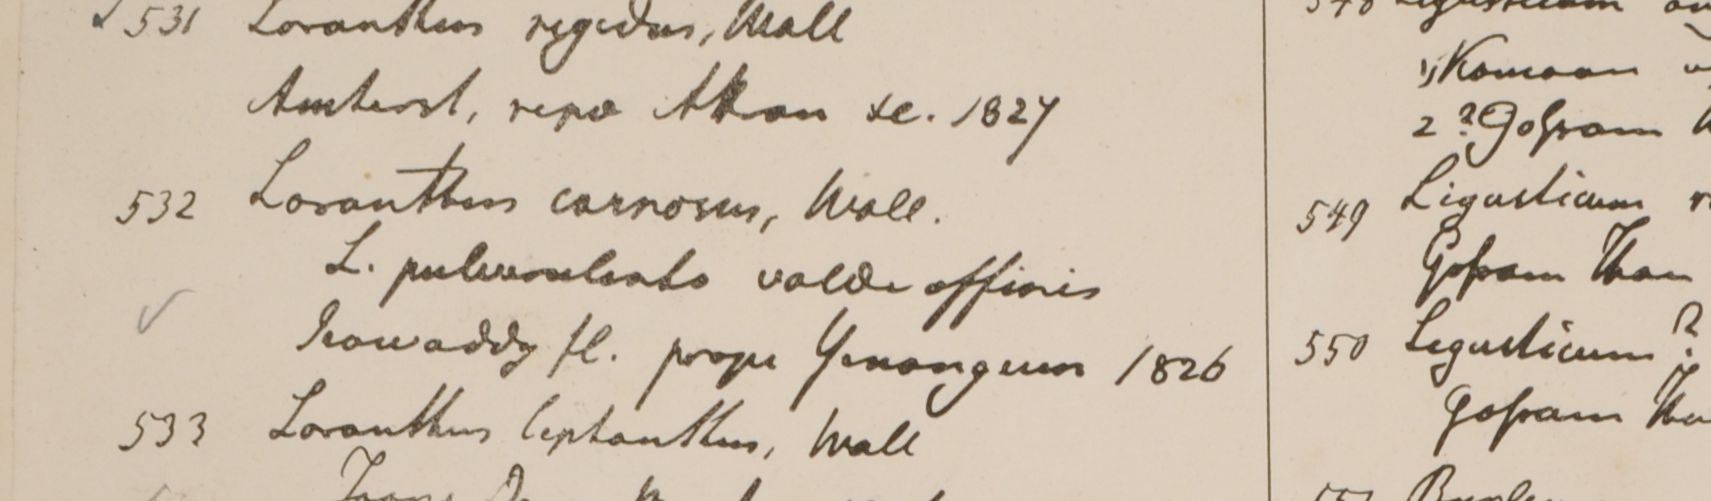 531 Loranthus rigidus, Wall
Amherst, ripa Attran sc. 1827
532 Loranthus carnosus, Wall.
L. pulverulento valde affinis
Irawaddy fl. prope Yenangeum 1826
533 Loranthus leptanthus, Wall
548 Ligusticum
1, Kamaon
2 ? Gossam
549 Ligusticum
Gossam Than
550 Ligusticum ?
Gossam
551